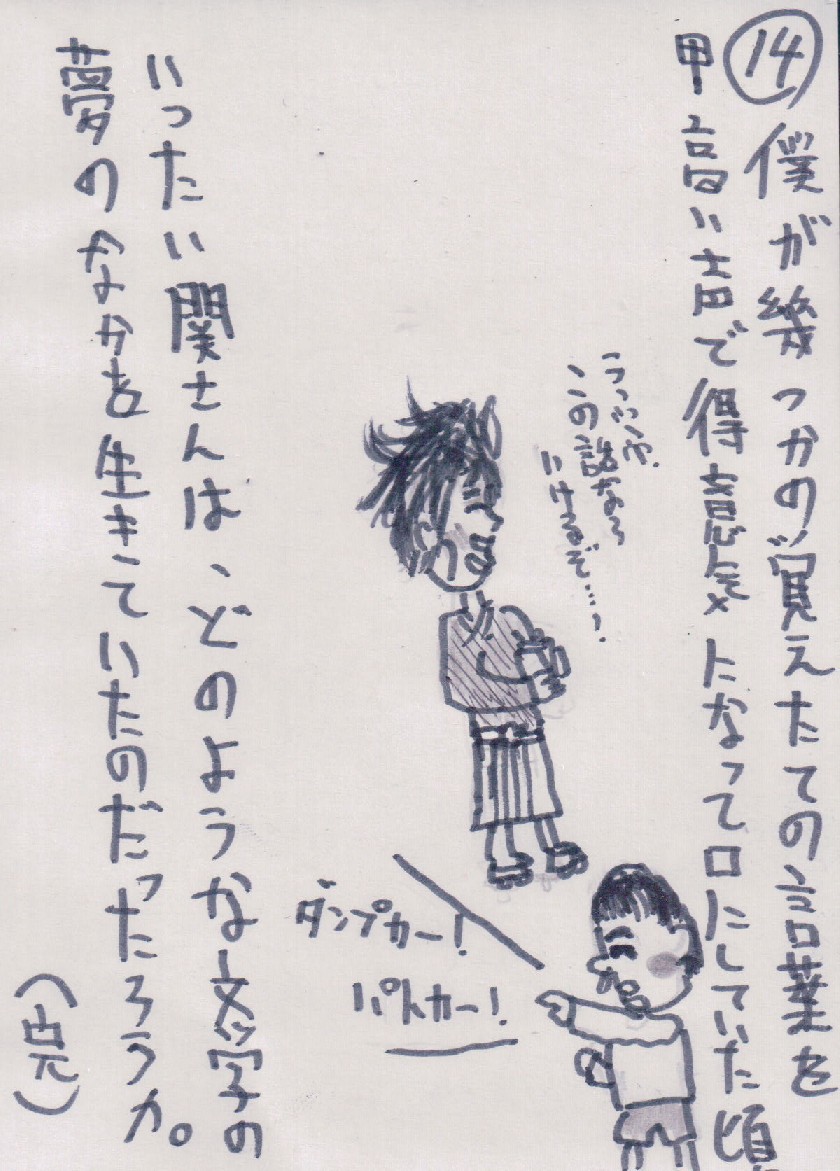 ⑭
僕が幾つかの覚えたての言葉を
甲高い声で得意気になって口にしていた頃
この話
ダンプカー!
パトカー!
いったい関さんは、どのような文字の
夢のなかを生きていたのだったろうか。
(完)